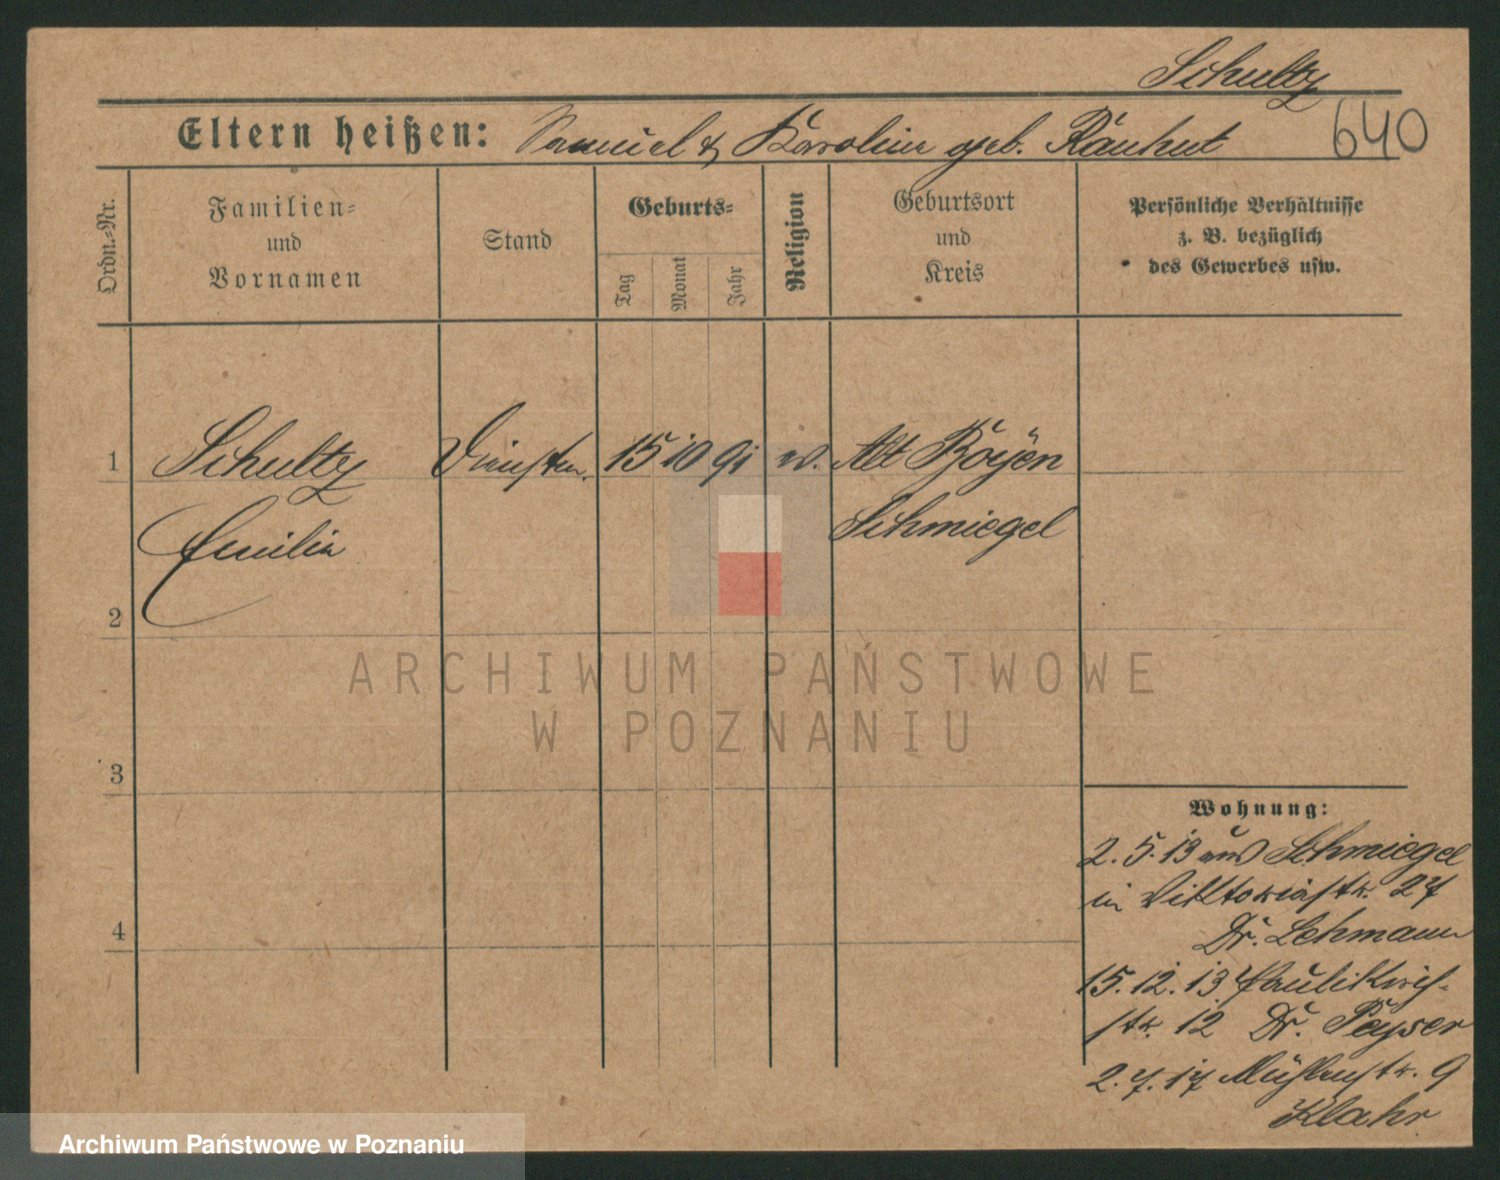 Schultz
Eltern heißen: Samuel & Karoline geb. Rauhut
640
Ordn.-Nr.
Familien-
und
Vornamen
Stand
Geburts-
Tag
Monat
Jahr
Religion
Geburtsort
und
Kreis
Persönliche Verhältnisse
z. B. bezüglich
des Gewerbes usw.
1 Schultz Dienstm. 15 10 91 ev. Alt Boyen
Emilie Schmiegel
2
ARCHIWUM PAŃSTWOWE
W POZNANIU
3
Wohnung:
2. 5. 13 aus Schmiegel
in Viktoriastr. 27
Dr. Lehmann
4
15. 12. 13 Paulikirch-
str. 12 Dr. Peyser
2. 7. 17 Mühlenstr. 9
Klahr
Archiwum Państwowe w Poznaniu